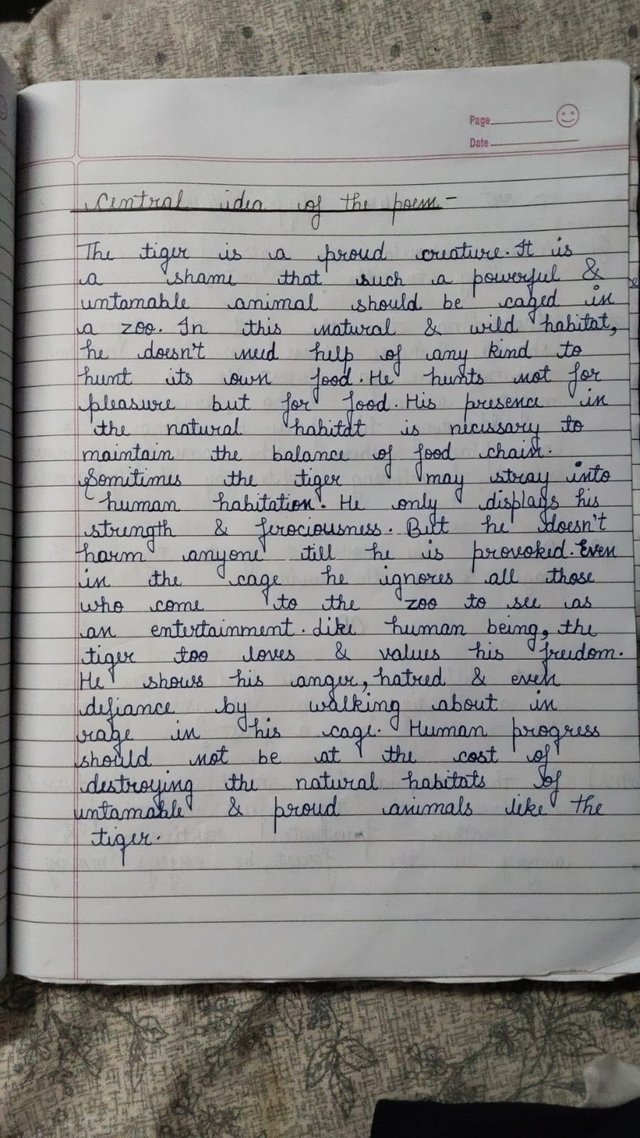 Page
Date
Central idea of the poem-
The tiger is a proud creature. It is
a shame that such a powerful &
untamable animal should be caged in
a zoo. In this natural & wild habitat,
he doesn't need help of any kind to
hunt its own food. He hunts not for
pleasure but for food. His presence in
the natural habitat is necessary to
maintain the balance of food chain.
Sometimes the tiger may stray into
human habitation. He only displays his
strength & ferociousness. But he doesn't
harm anyone till he is provoked. Even
in the cage he ignores all those
who come to the zoo to see as
an entertainment. Like human being, the
tiger too loves & values his freedom.
He shows his anger, hatred & even
defiance by walking about in
rage in his cage. Human progress
should not be at the cost of
destroying the natural habitats of
untamable & proud animals like the
tiger.